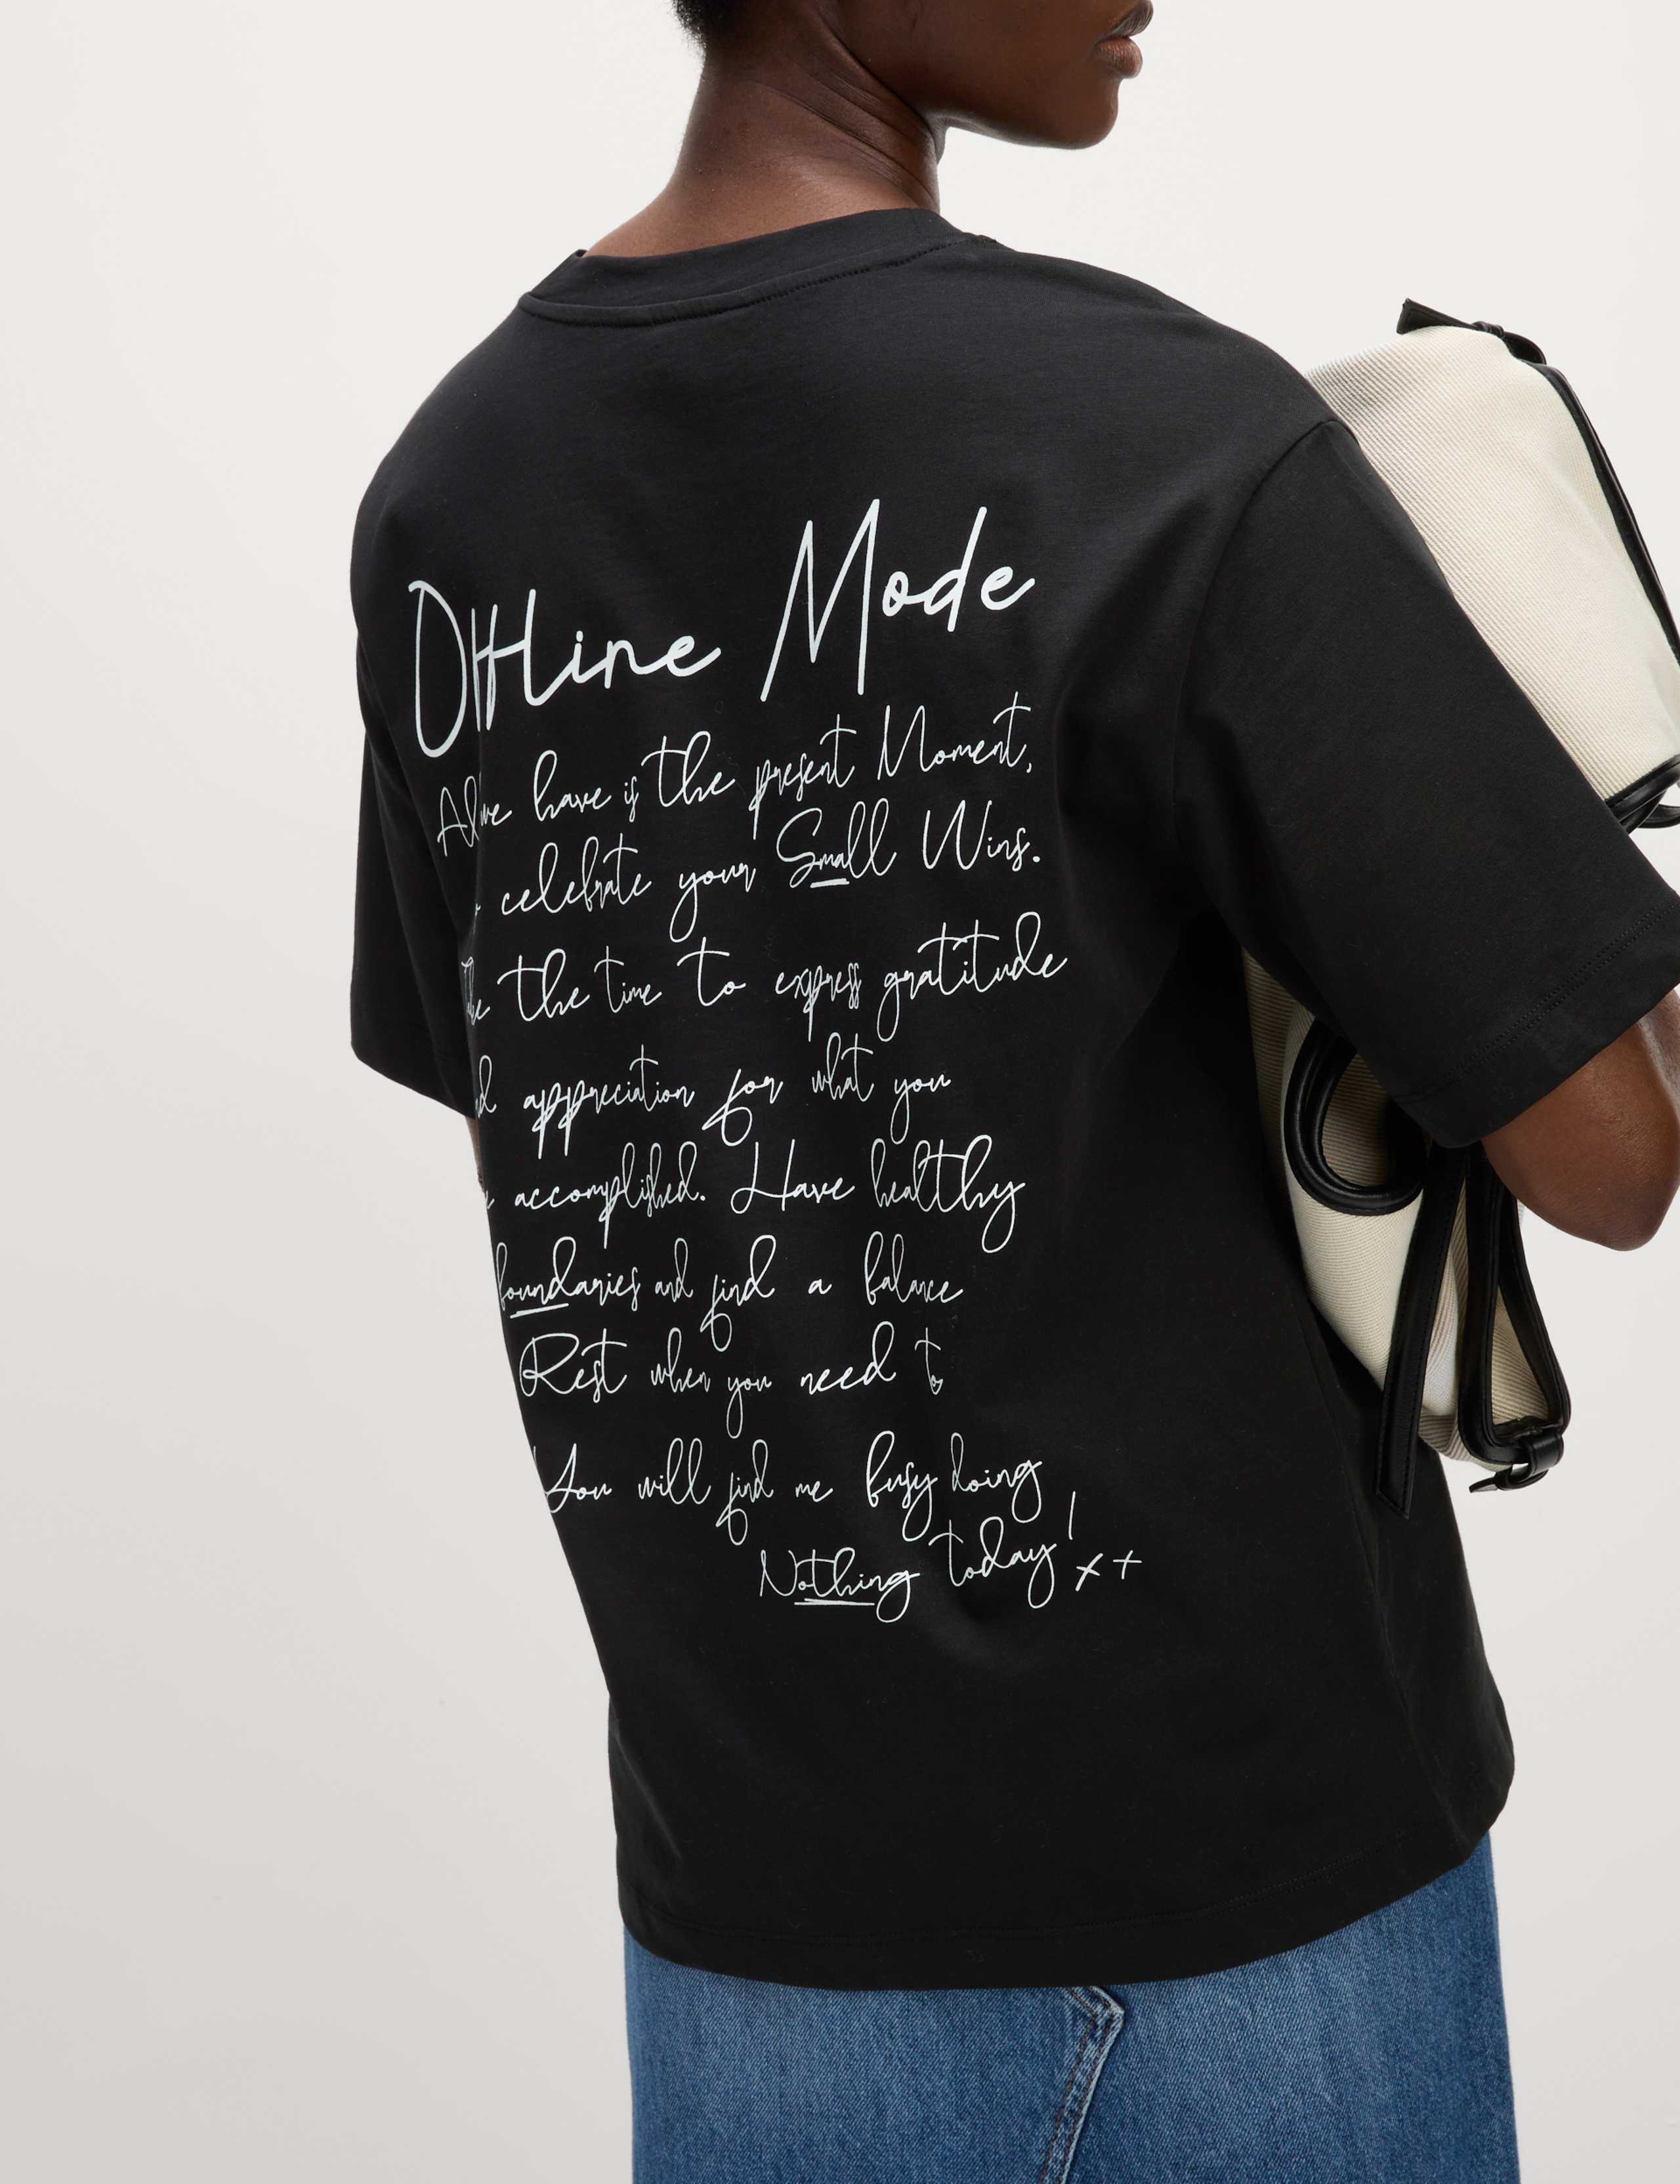 Offline Mode
All we have is the present Moment,
celebrate your Small Wins.
the time to express gratitude
appreciation for what you
accomplished. Have healthy
boundaries and find a balance
Rest when you need to
"You will find me busy doing
Nothing today! x+